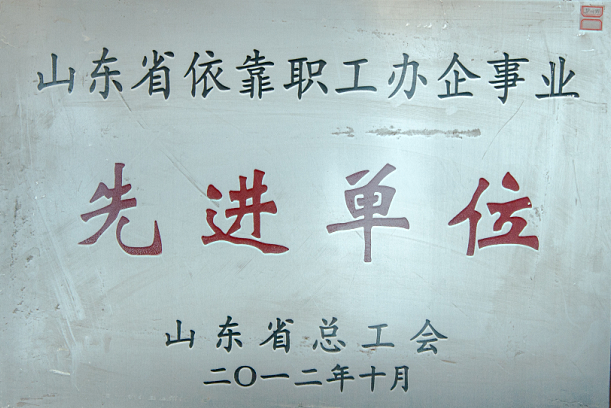 山东省依靠职工办企事业
先进单位
山东省总工会
二〇一二年十月